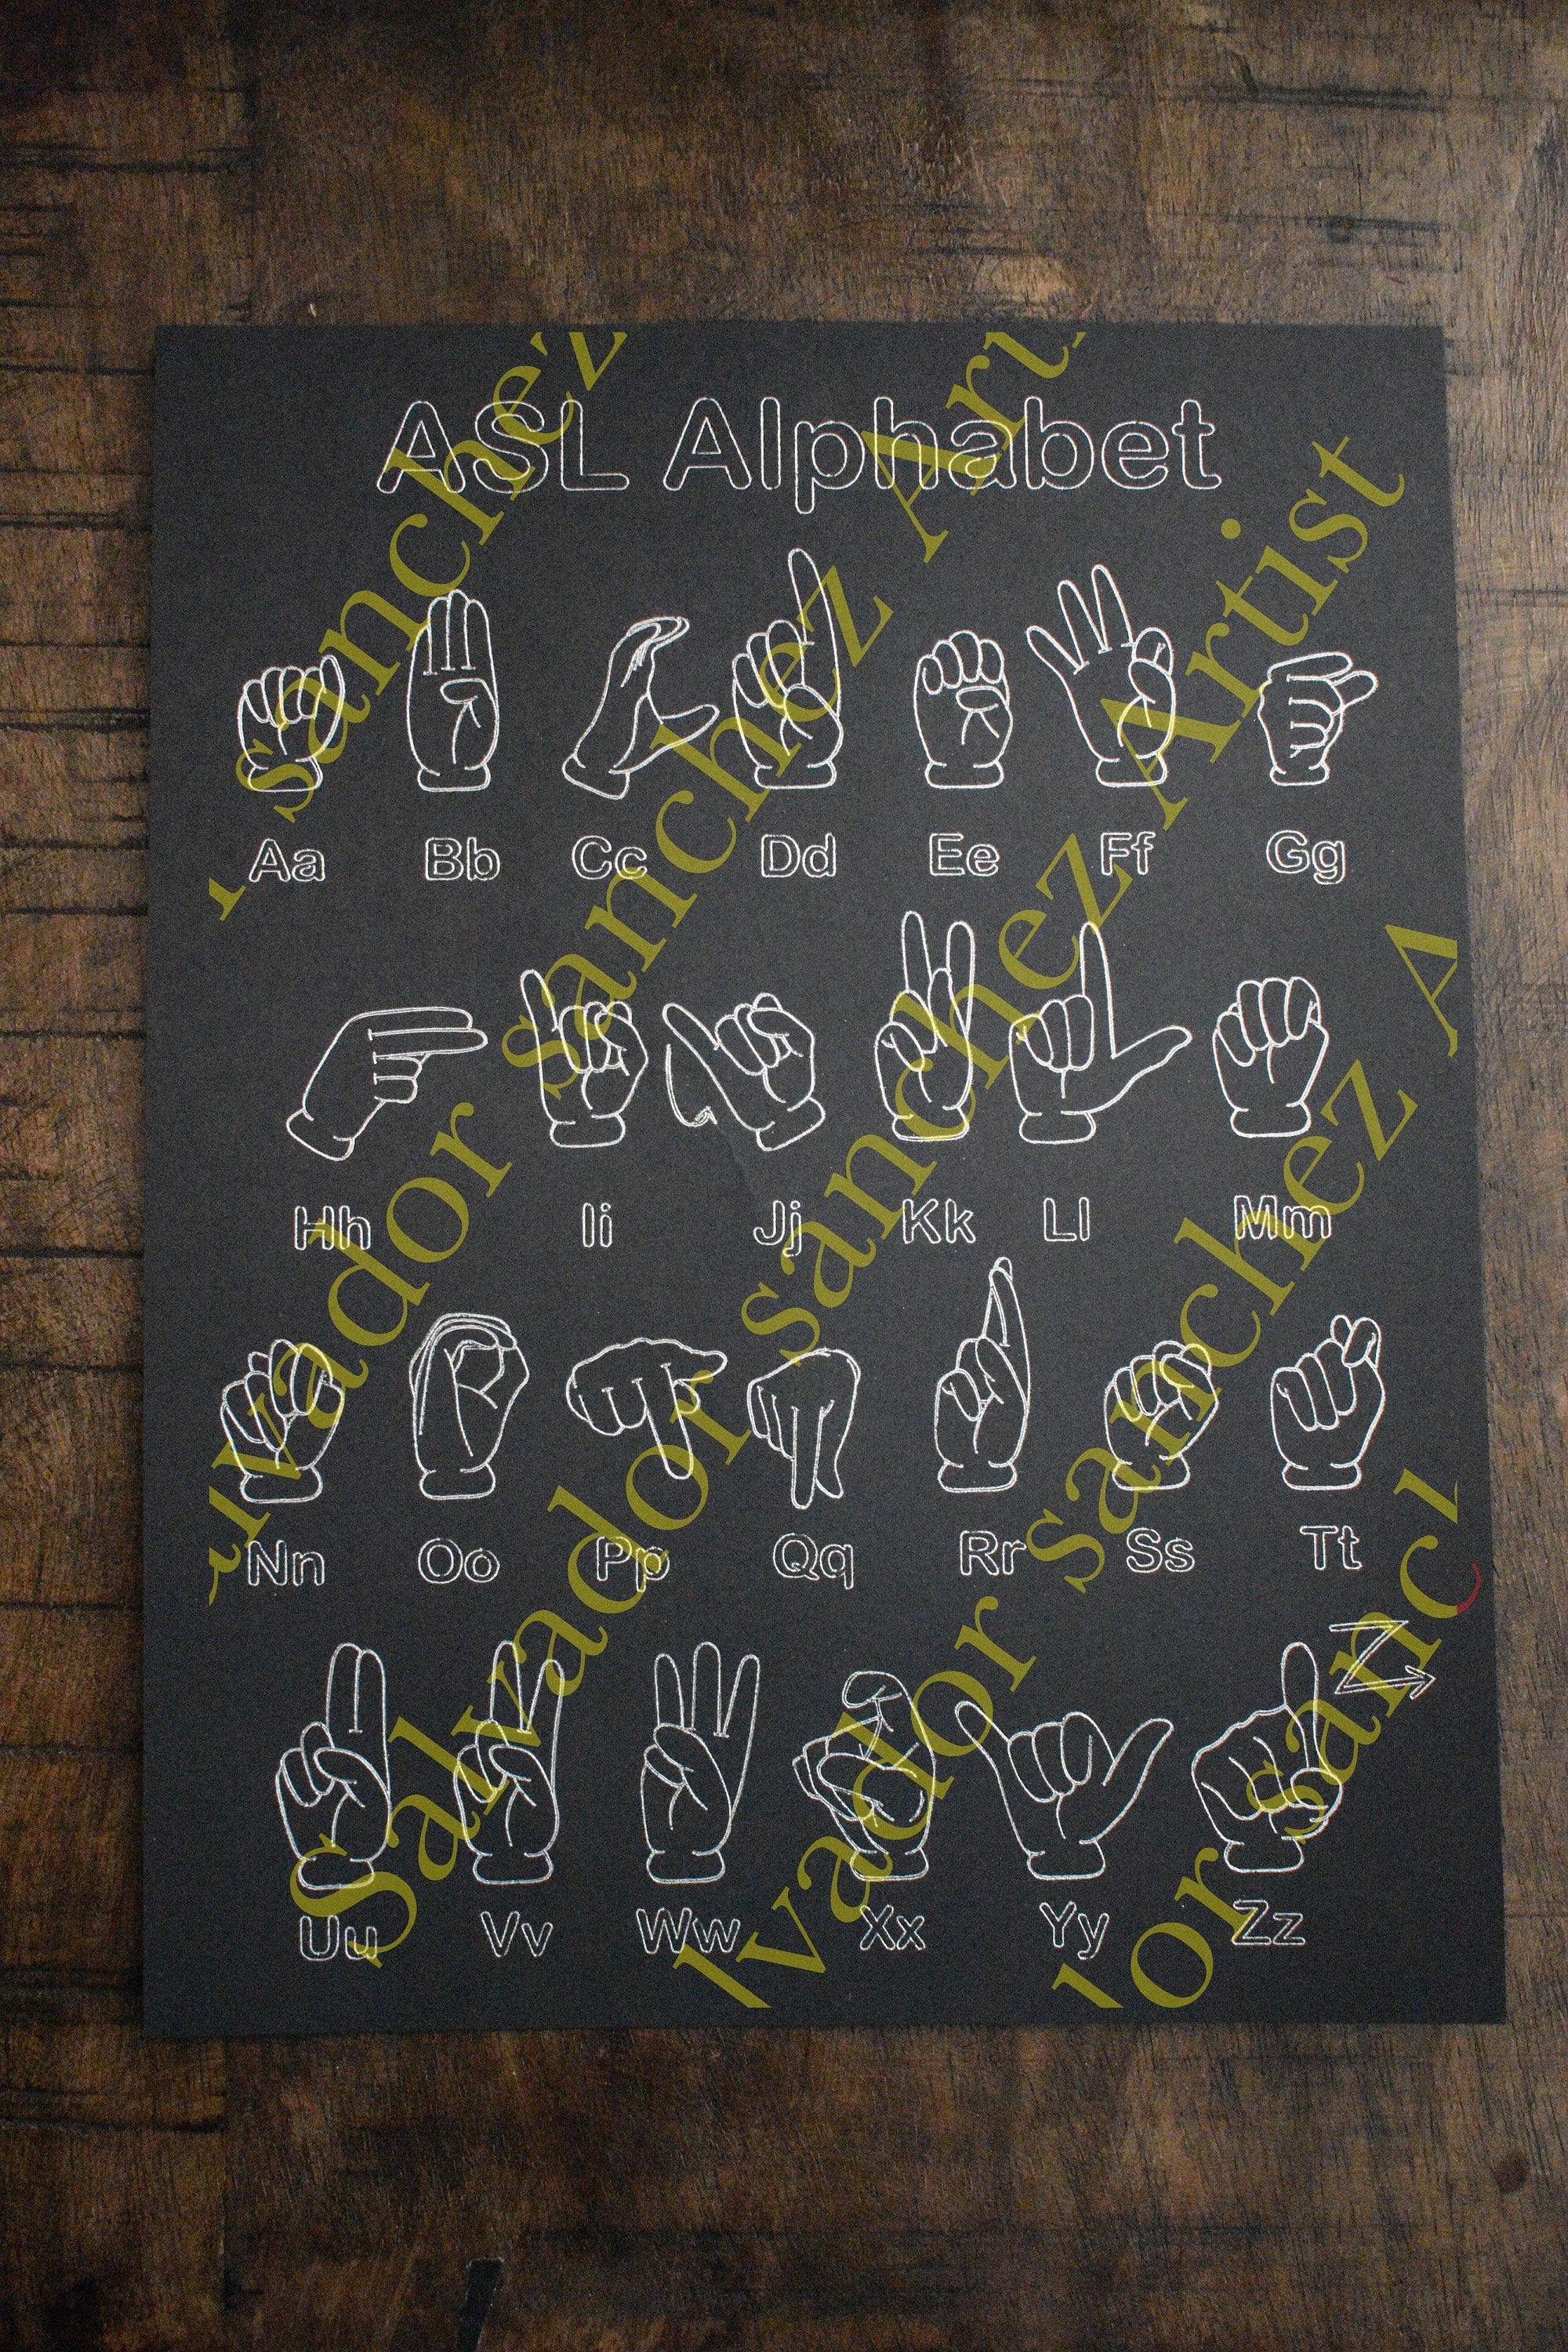 ASL Alphabet
Aa Bb Cc Dd Ee Ff Gg
Hh Ii Jj Kk Ll Mm
Nn Oo Pp Qq Rr Ss Tt
Uu Vv Ww Xx Yy Zz
Z
sanchez
Salvador sanchez Artist
Salvador sanchez Artist
sanchez